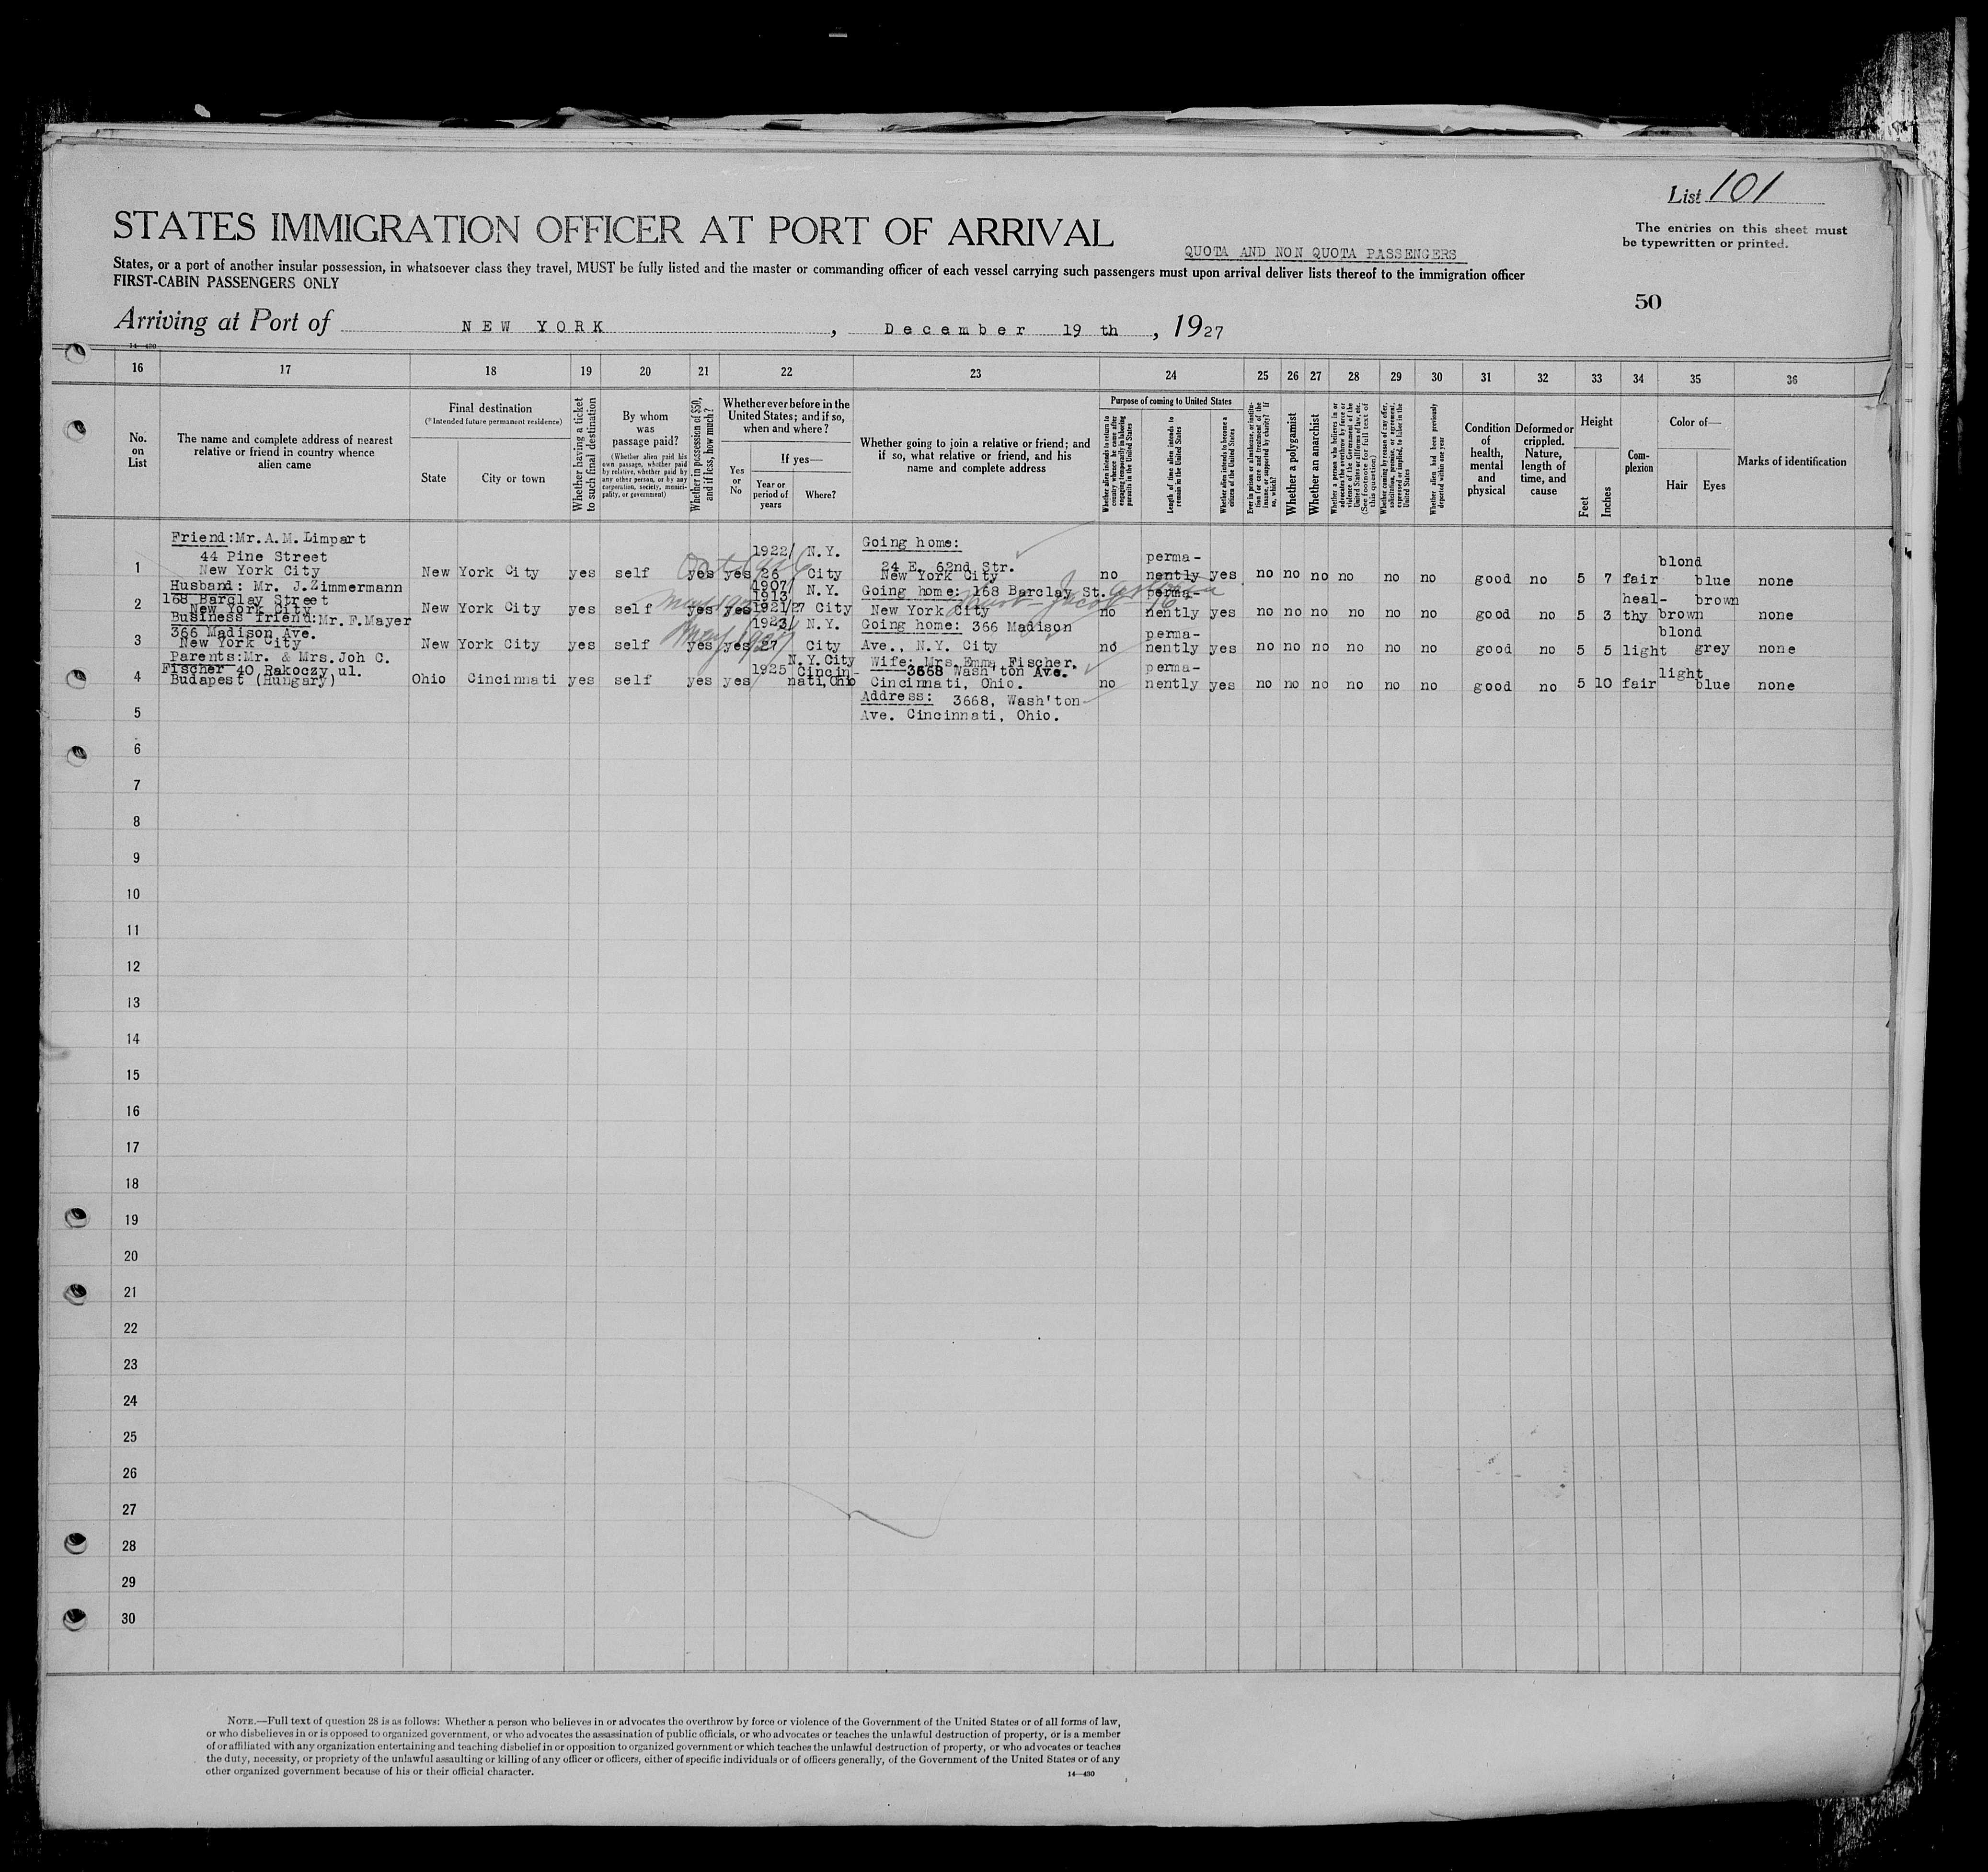 List 101
STATES IMMIGRATION OFFICER AT PORT OF ARRIVAL
The entries on this sheet must
be typewritten or printed.
QUOTA AND NON QUOTA PASSENGERS
States, or a port of another insular possession, in whatsoever class they travel, MUST be fully listed and the master or commanding officer of each vessel carrying such passengers must upon arrival deliver lists thereof to the immigration officer
FIRST-CABIN PASSENGERS ONLY
50
Arriving at Port of NEW YORK, December 19 th, 1927
14—430
16 17 18 19 20 21 22 23 24 25 26 27 28 29 30 31 32 33 34 35 36
No. on List
The name and complete address of nearest relative or friend in country whence alien came
Final destination
(*Intended future permanent residence)
State
City or town
Whether having a ticket to such final destination
By whom was passage paid?
(Whether alien paid his own passage, whether paid by relative, whether paid by any other person, or by any corporation, society, municipality, or government)
Whether in possession of $50, and if less, how much?
Whether ever before in the United States; and if so, when and where?
Yes or No
If yes—
Year or period of years
Where?
Whether going to join a relative or friend; and if so, what relative or friend, and his name and complete address
Purpose of coming to United States
Whether alien intends to return to country whence he came after engaging temporarily in laboring pursuits in the United States
Length of time alien intends to remain in the United States
Whether alien intends to become a citizen of the United States
Ever in prison or almshouse, or institution for care and treatment of the insane, or supported by charity? If so, which?
Whether a polygamist
Whether an anarchist
Whether a person who believes in or advocates the overthrow by force or violence of the Government of the United States or all forms of law, etc. (See footnote for full text of this question)
Whether coming by reason of any offer, solicitation, promise, or agreement, expressed or implied, to labor in the United States
Whether alien had been previously deported within one year
Condition of health, mental and physical
Deformed or crippled. Nature, length of time, and cause
Height
Feet
Inches
Complexion
Color of—
Hair
Eyes
Marks of identification
1 Friend: Mr. A. M. Limpart
44 Pine Street
New York City
New York City yes self yes yes 1922/26 N.Y. City
Going home:
24 E. 62nd Str.
New York City
no permanently yes no no no no no no good no 5 7 fair blond blue none
Oct 1926
2 Husband: Mr. J. Zimmermann
168 Barclay Street
New York City
New York City yes self yes yes 1907/1913 1921/27 N.Y. City
Going home: 168 Barclay St.
New York City
no permanently yes no no no no no no good no 5 3 healthy brown brown none
3 Business friend: Mr. F. Mayer
366 Madison Ave.
New York City
New York City yes self yes yes 1923/27 N.Y. City
Going home: 366 Madison
Ave., N.Y. City
no permanently yes no no no no no no good no 5 5 light blond grey none
May 1927
4 Parents: Mr. & Mrs. Joh C.
Fischer 40 Rakoczy ul.
Budapest (Hungary)
Ohio Cincinnati yes self yes yes 1925 N.Y. City Cincinnati, Ohio
Wife: Mrs. Emma Fischer.
3668 Wash'ton Ave.
Cincinnati, Ohio.
no permanently yes no no no no no no good no 5 10 fair light blue none
5 Address: 3668, Wash'ton
Ave. Cincinnati, Ohio.
6
7
8
9
10
11
12
13
14
15
16
17
18
19
20
21
22
23
24
25
26
27
28
29
30
NOTE.—Full text of question 28 is as follows: Whether a person who believes in or advocates the overthrow by force or violence of the Government of the United States or of all forms of law,
or who disbelieves in or is opposed to organized government, or who advocates the assassination of public officials, or who advocates or teaches the unlawful destruction of property, or is a member
of or affiliated with any organization entertaining and teaching disbelief in or opposition to organized government or which teaches the unlawful destruction of property, or who advocates or teaches
the duty, necessity, or propriety of the unlawful assaulting or killing of any officer or officers, either of specific individuals or of officers generally, of the Government of the United States or of any
other organized government because of his or their official character.
14—430